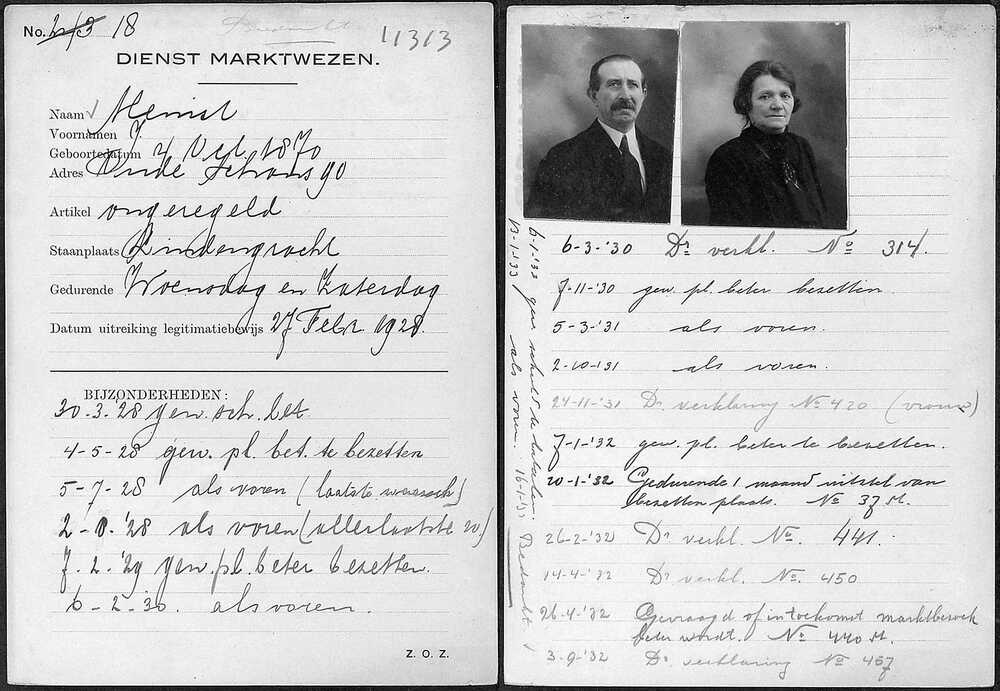 No. 213 18
Bedankt
11313
DIENST MARKTWEZEN.
Naam
Voornamen J.
Geboortedatum 1870
Adres Oude Schans 90
Artikel ongeregeld
Staanplaats Lindengracht
Gedurende Woensdag en Zaterdag
Datum uitreiking legitimatiebewijs 27 Febr 1928.
BIJZONDERHEDEN:
30-3-'28 gew. sch. bet.
4-5-28 gew. pl. bet. te bezetten
5-7-28 als voren (laatste waarsch)
2-8.'28 als voren (allerlaatste w)
7-2-'29 gew. pl. beter bezetten.
6-2-30. als voren.
Z. O. Z.
6-3-'30 Dr. verkl. No 314.
7-11-'30 gew. pl. beter bezetten.
5-3-'31 als voren.
2-10-'31 als voren.
24-11-'31 Dr. verklaring No 420 (vrouw)
7-1-'32 gew. pl. beter te bezetten.
20-1-'32 Gedurende 1 maand uitstel van
bezetten plaats. No 37 st.
26-2-'32 Dr. verkl. No. 441.
14-4-'32 Dr. verkl. No. 450
26-4-'32 Gevraagd of in toekomst marktbezoek
beter wordt. No 440 st.
3-9-'32 Dr. verklaring No 467
6-1-'32 gew. schuld te betalen
13-1-'33 als voren. 16-1-'33 Bedankt.